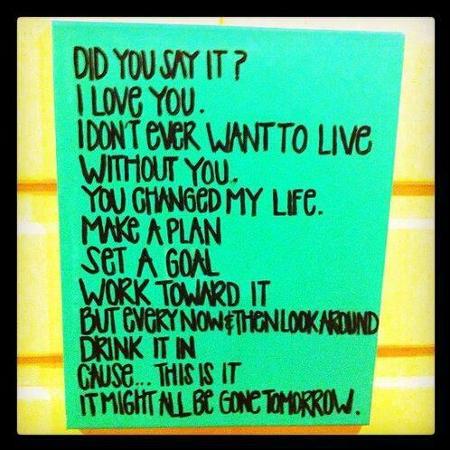 DID YOU SAY IT?
I LOVE YOU.
I DON'T EVER WANT TO LIVE
WITHOUT YOU.
YOU CHANGED MY LIFE.
MAKE A PLAN
SET A GOAL
WORK TOWARD IT
BUT EVERY NOW & THEN LOOK AROUND
DRINK IT IN
CAUSE... THIS IS IT
IT MIGHT ALL BE GONE TOMORROW.